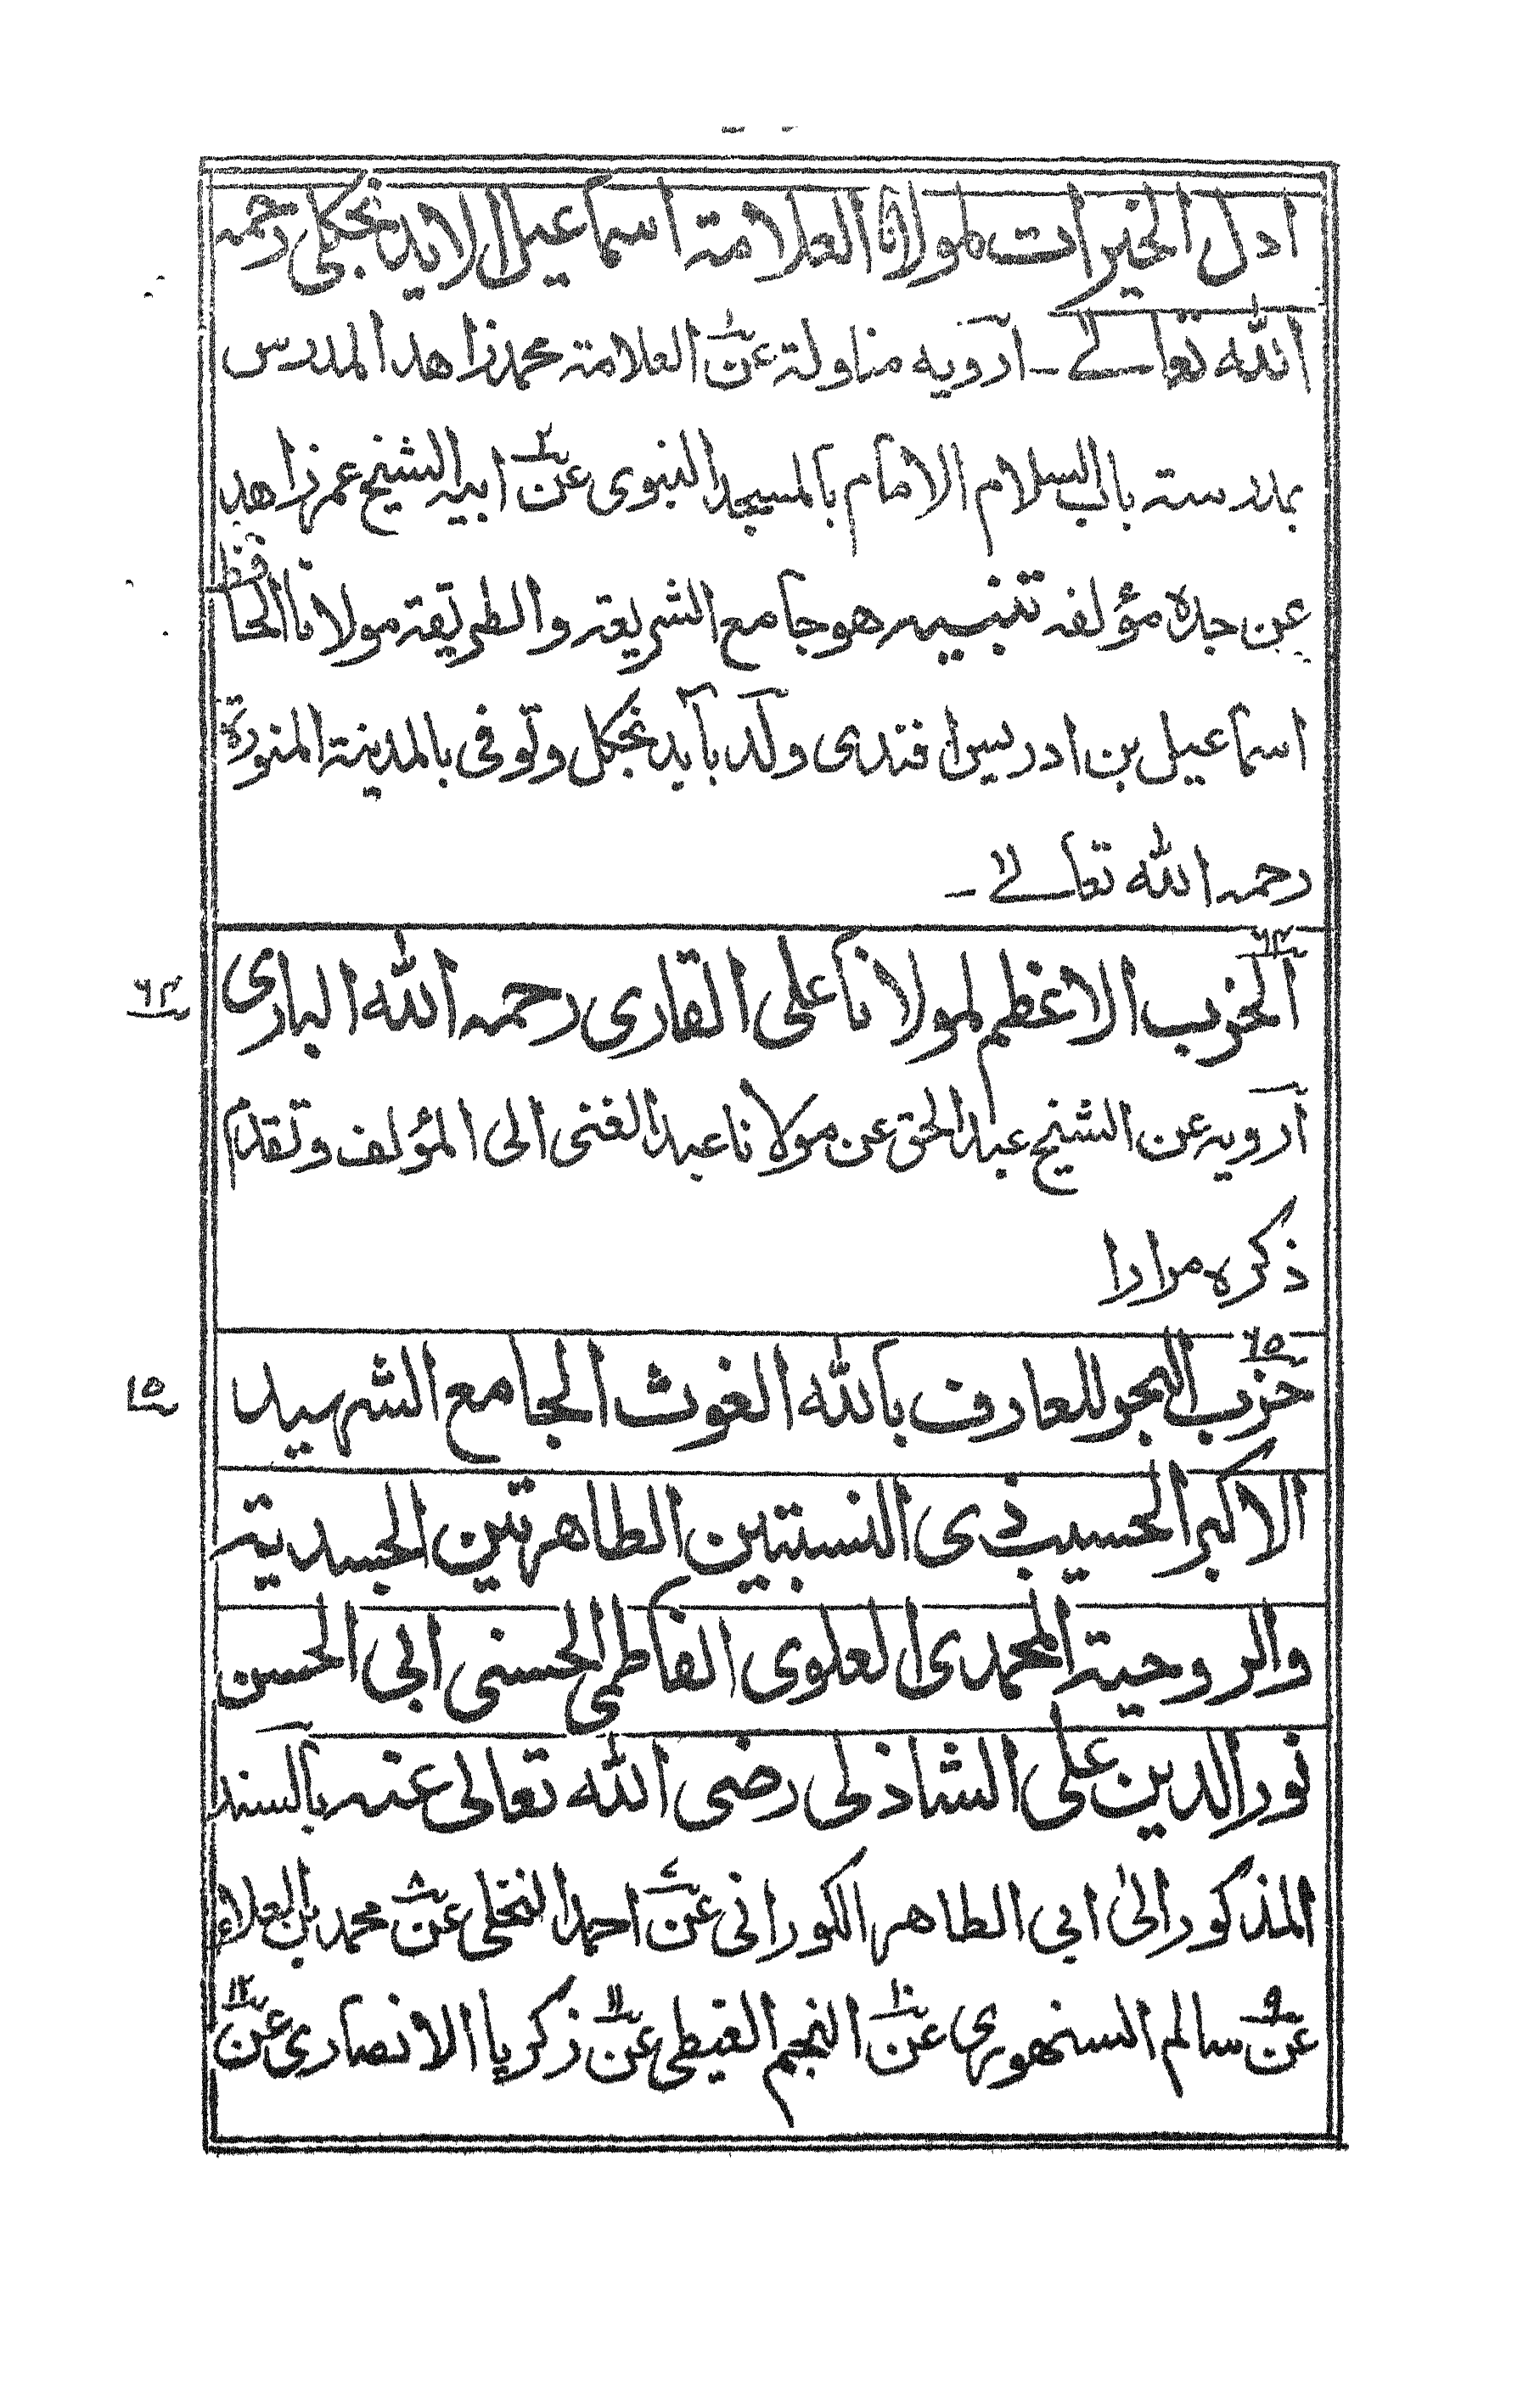 ادل الخيرات لمولانا العلامة اسماعيل الايدنجكلى رحمه
الله تعالے ـ آرويه مناولة عن١ العلامة محمد زاهد المدرس
بمدرسته باب السلام الامام بالمسجد النبوى عن٢ ابيه الشيخ عمر زاهد
عن جده مؤلفه تنبيه هو جامع الشريعة والطريقة مولانا الحافظ
اسماعيل بن ادريس افندى ولد بآيدنجكل وتوفى بالمدينة المنورة
رحمه الله تعالے ـ
٦٤ الحزب الاعظم لمولانا على القارى رحمه الله البارى
٦٤
آرويه عن الشيخ عبد الحق عن مولانا عبد الغنى الى المؤلف وتقدم
ذكره مرارا
٦٥ حزب البحر للعارف بالله الغوث الجامع الشهيد
٦٥
الاكبر الحسيب ذى النسبتين الطاهرتين الجسدية
والروحية المحمدى العلوى الفاطمى الحسنى ابى الحسن
نور الدين على الشاذلى رضى الله تعالى عنه بالسند
المذكور الى ابى الطاهر الكورانى عن٧ احمد النخلى عن٨ محمد بن العلاء
عن٩ سالم السنهورى عن١٠ النجم الغيطى عن١١ زكريا الانصارى عن١٢